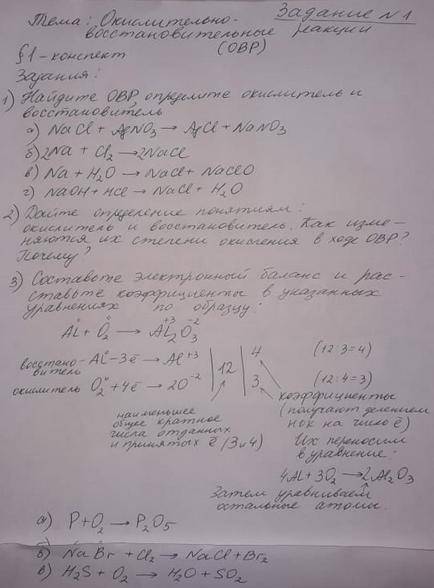 Задание N1
Тема: Окислительно-
восстановительные реакции
(ОВР)
§1 - конспект
Задания:
1) Найдите ОВР, определите окислитель и
восстановитель
а) NaCl + AgNO₃ → AgCl + NaNO₃
б) 2Na + Cl₂ → 2NaCl
в) Na + H₂O → NaCl + NaClO
г) NaOH + HCl → NaCl + H₂O
2) Дайте определение понятиям:
окислитель и восстановитель. Как изме-
няются их степени окисления в ходе ОВР?
Почему?
3) Составьте электронный баланс и рас-
ставьте коэффициенты в указанных
уравнениях по образцу:
Al⁰ + O₂⁰ → Al₂⁺³O₃⁻²
восстано-
витель Al⁰ - 3ē → Al⁺³ | 12 | 4 (12:3=4)
окислитель O₂⁰ + 4ē → 2O⁻² 3 (12:4=3)
наименьшее
общее кратное
числа отданных
и принятых ē (3 и 4)
коэффициенты
(получают делением
НОК на число ē)
Их переносим
в уравнение:
4Al + 3O₂ → 2Al₂O₃
Затем уравниваем
остальные атомы.
а) P + O₂ → P₂O₅
б) NaBr + Cl₂ → NaCl + Br₂
в) H₂S + O₂ → H₂O + SO₂